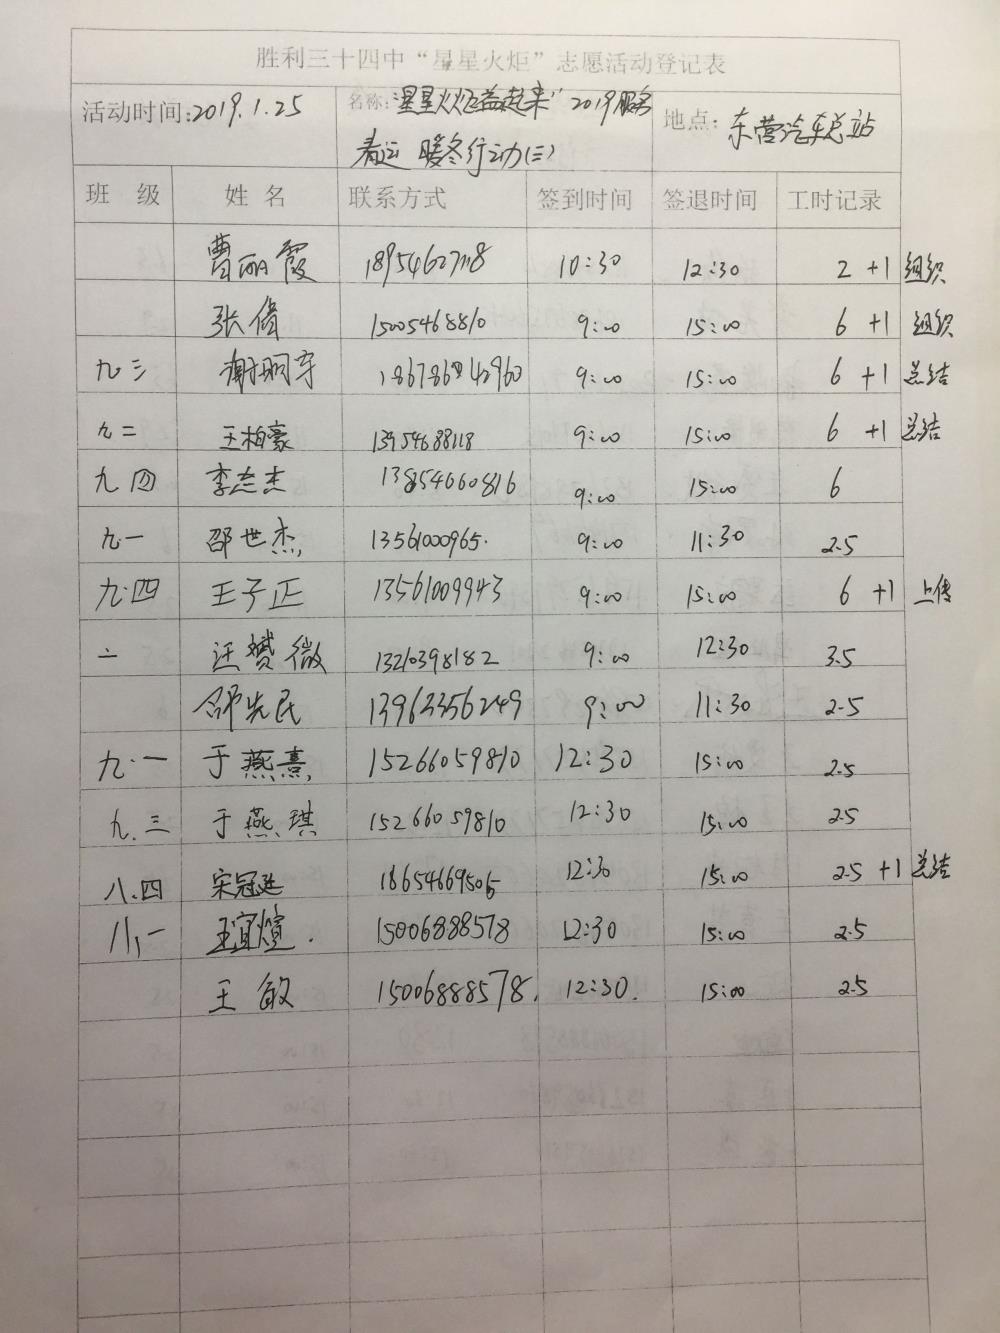 胜利三十四中“星星火炬”志愿活动登记表
活动时间:2019.1.25 名称:“星星火炬益起来”2019服务 地点: 东营汽车总站
春运 暖冬行动(三)
班 级 姓 名 联系方式 签到时间 签退时间 工时记录
曹丽霞 18954627118 10:30 12:30 2 +1 组织
张倩 15005468810 9:00 15:00 6 +1 组织
九三 9:00 15:00 6 +1 总结
九二 王柏豪 13954688118 9:00 15:00 6 +1 总结
九四 李志杰 13854660816 9:00 15:00 6
九一 邵世杰 13561000965. 9:00 11:30 2.5
九.四 王子正 13561009943 9:00 15:00 6 +1 上传
二 汪赟微 13210398182 9:00 12:30 3.5
邵先民 13963356249 9:00 11:30 2.5
九.一 于燕熹 15266059810 12:30 15:00 2.5
九.三 于燕琪 15266059810 12:30 15:00 2.5
八.四 宋冠廷 18654669506 12:30 15:00 2.5 +1 总结
八.一 王宜煊. 15006888578 12:30 15:00 2.5
王敏 15006888578. 12:30. 15:00 2.5